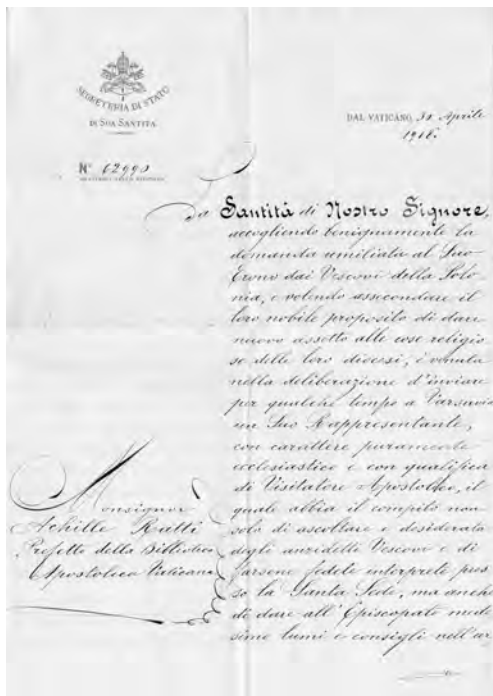 SEGRETERIA DI STATO
DI SUA SANTITÀ
N° 62990
DAL VATICANO, 30 Aprile
1918.
La Santità di Nostro Signore,
accogliendo benignamente la
domanda umiliata al Suo
Trono dai Vescovi della Polo
nia, e volendo assecondare il
loro nobile proposito di dare
nuovo assetto alle cose religio
se delle loro diocesi, è venuta
nella deliberazione d'inviare
per qualche tempo a Varsavia
un Suo Rappresentante,
con carattere puramente
ecclesiastico e con qualifica
di Visitatore Apostolico, il
quale abbia il compito non
solo di ascoltare i desiderata
degli anzidetti Vescovi e di
farsene fedele interprete pres
so la Santa Sede, ma anche
di dare all'Episcopato mede
simo lumi e consigli nell'ar
Monsignor
Achille Ratti
Prefetto della Biblioteca
Apostolica Vaticana